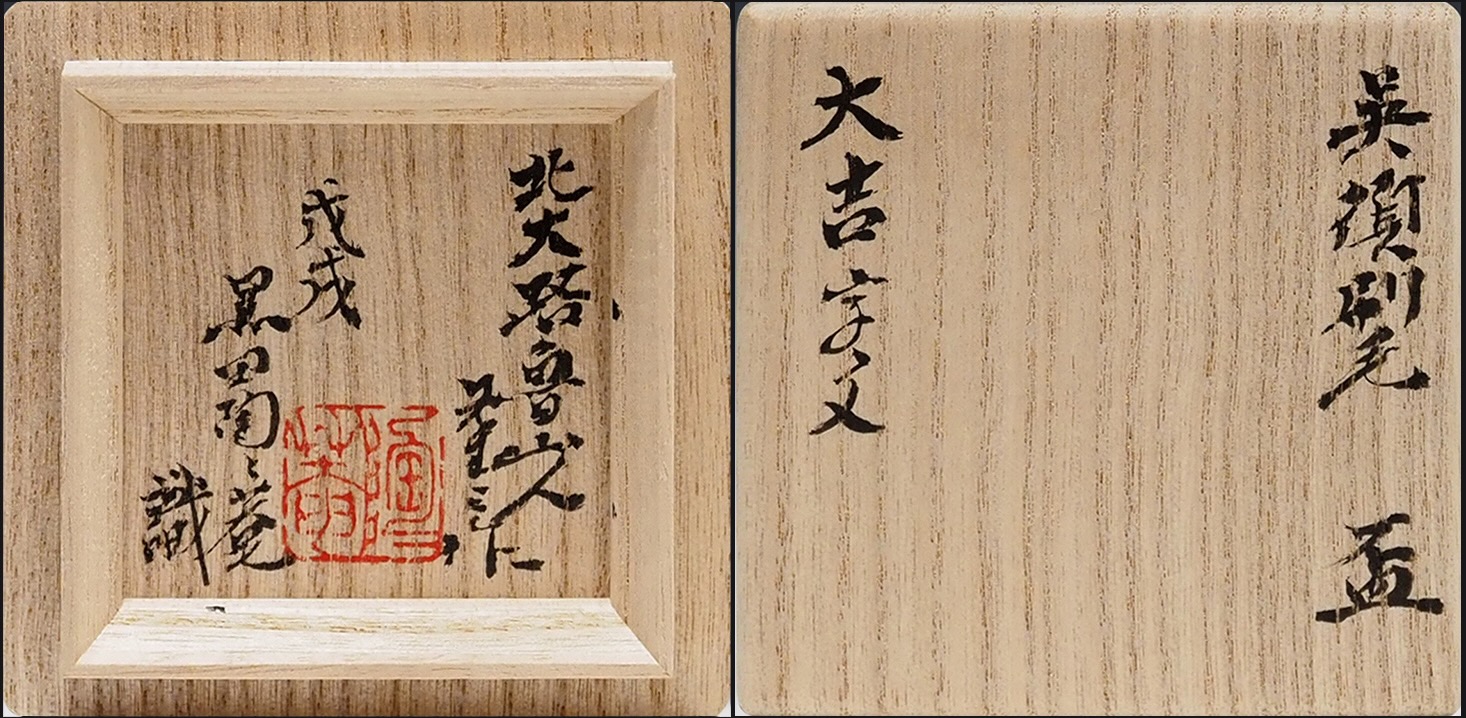 呉須刷毛 盃
大吉字文
北大路魯山人
戊戌
黒田陶々菴
識